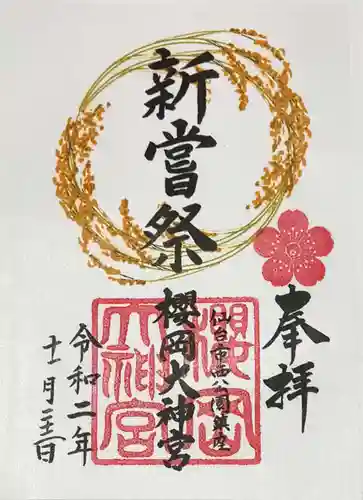 奉拝
仙台市西公園鎮座
新嘗祭
櫻岡大神宮
令和二年
十一月二十三日
櫻岡
大神宮